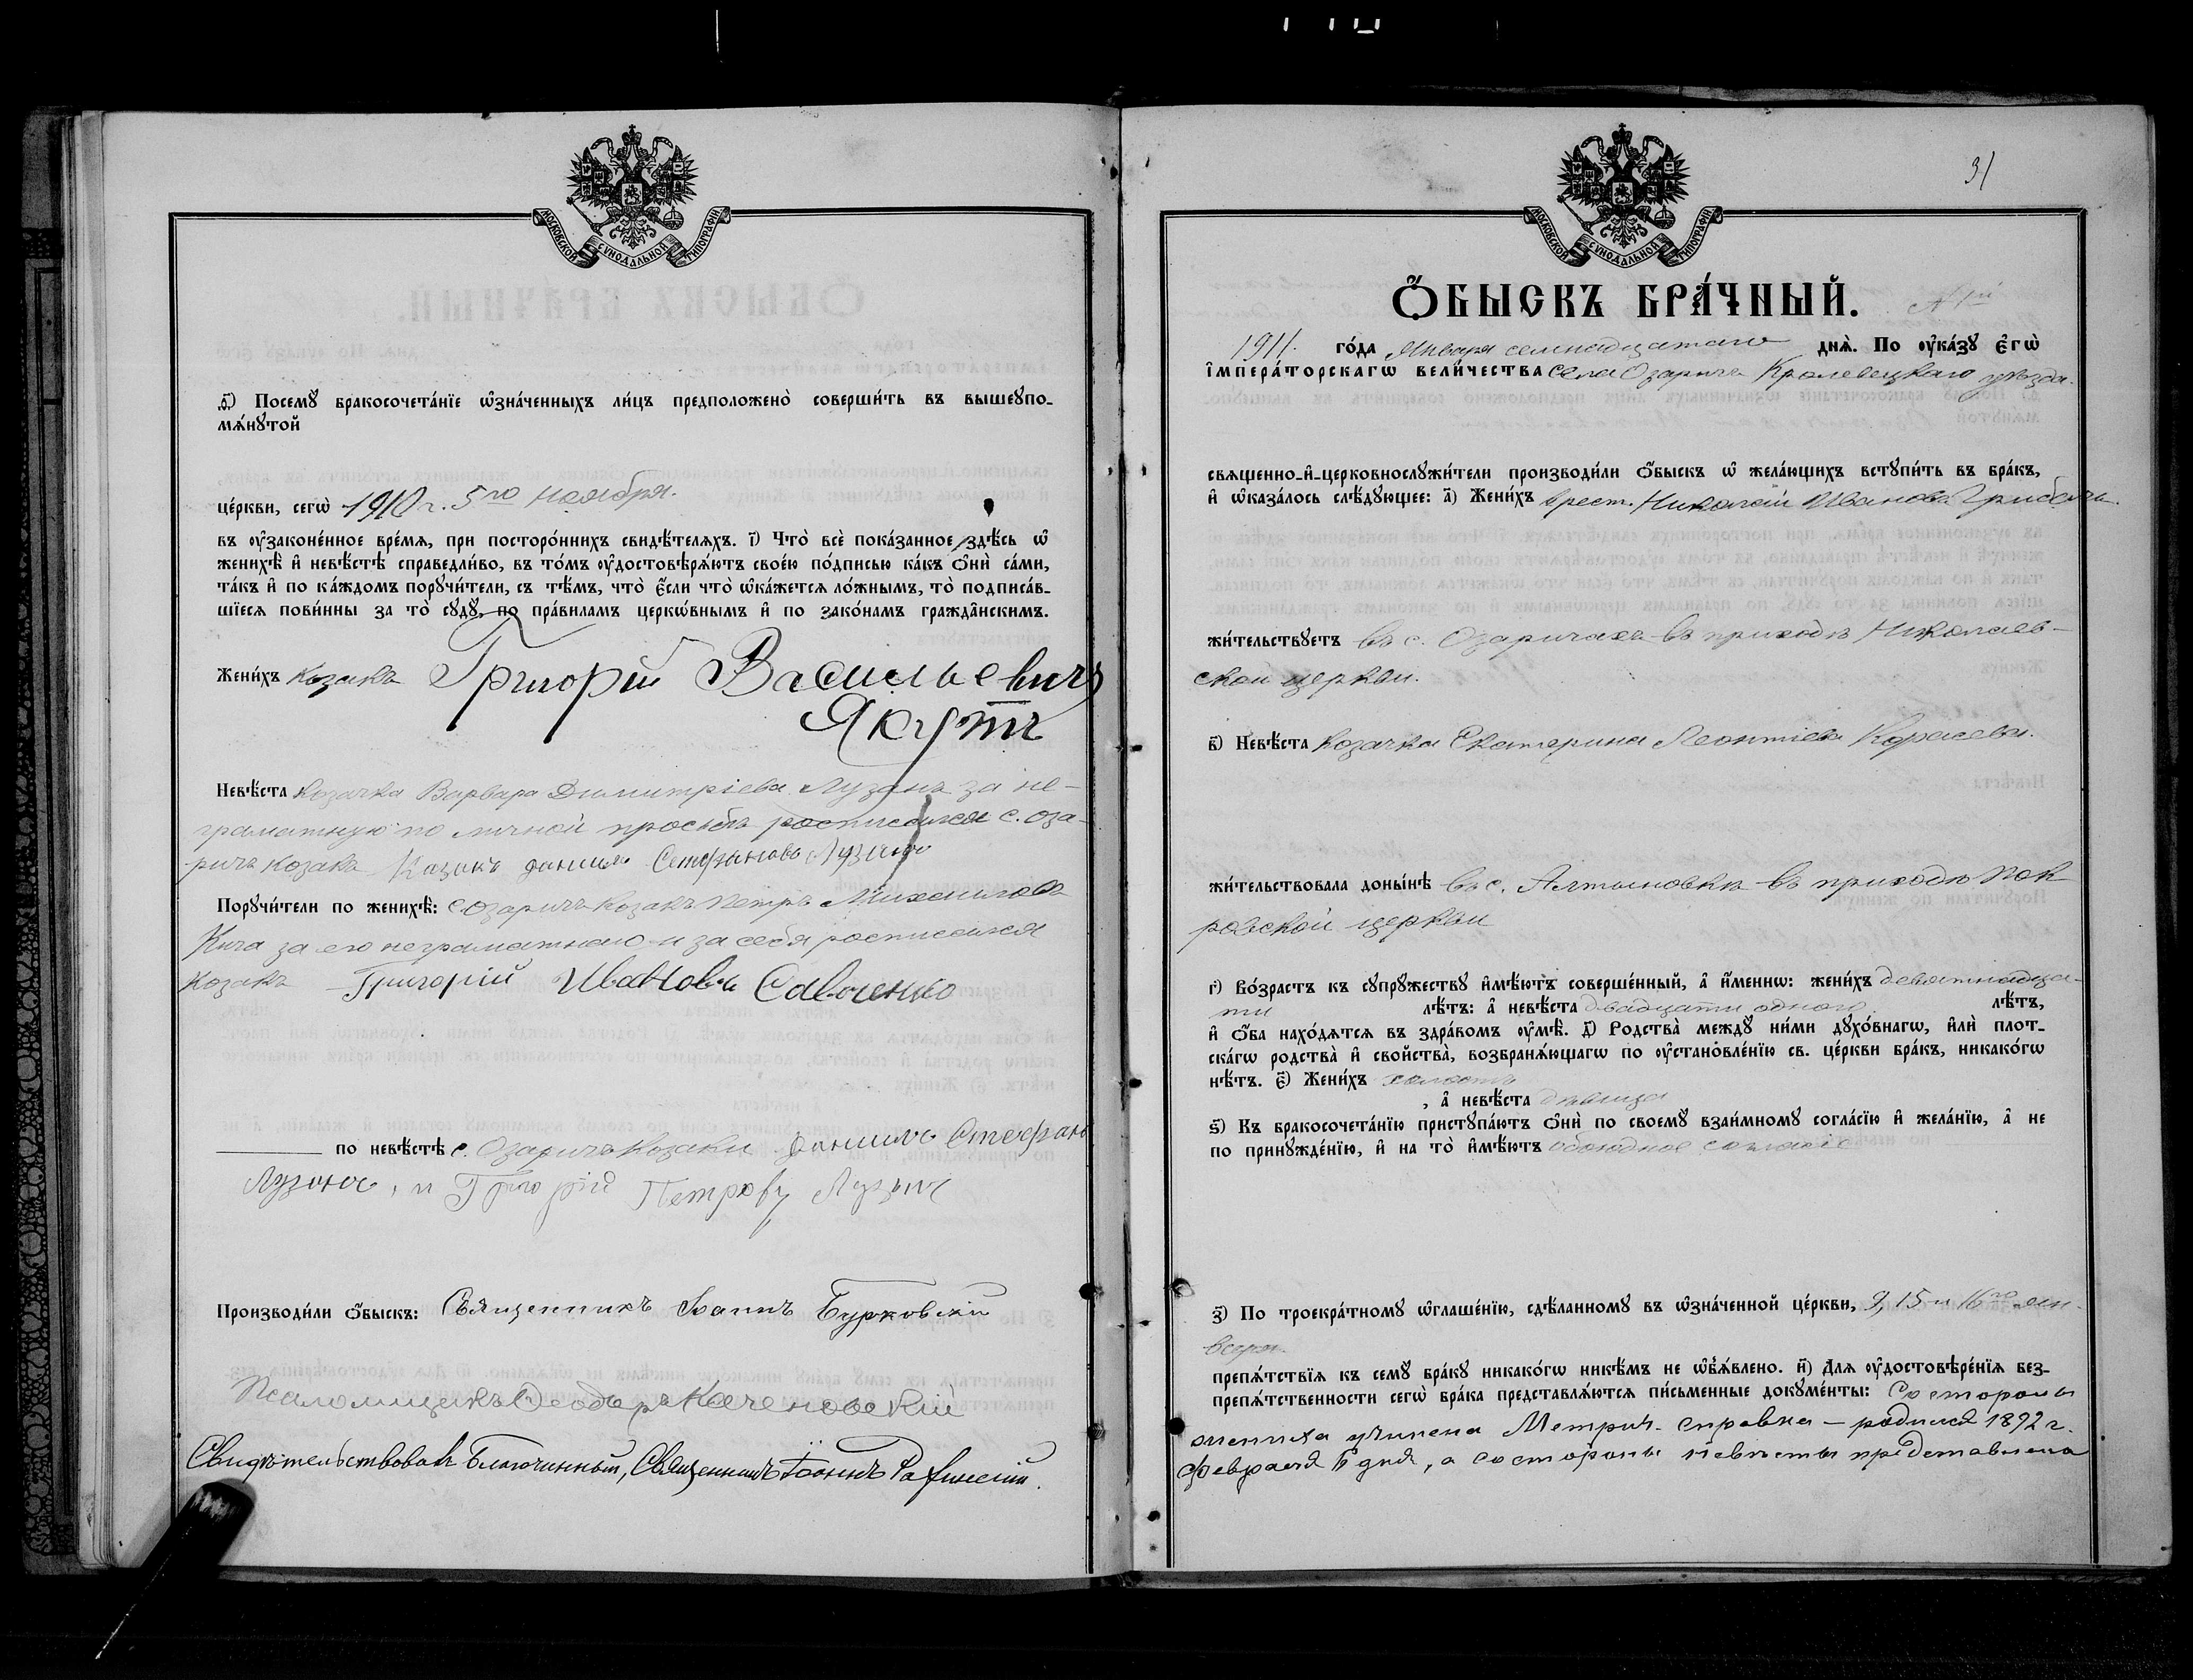 МОСКОВСКОЙ СѴНОДАЛЬНОЙ ТИПОГРАФІИ
ѳ҃) Посемꙋ̀ бракосочета́нїе ѡ҆зна́ченныхъ ли́цъ предположено̀ соверши́ть въ вышеꙋпо-
мѧ́нꙋтой
це́ркви, сегѡ̀ 1910 г. 5го ноября.
въ ᲂу҆зако́ненное вре́мѧ, при посторо́ннихъ свидѣ́телѧхъ. і҃) Что̀ всѐ пока́занное здѣ́сь ѡ҆
женихѣ̀ и҆ невѣ́стѣ справедли́во, въ то́мъ ᲂу҆достовѣрѧ́ютъ свое́ю по́дписью ка́къ ѻ҆нѝ са́ми,
та́къ и҆ по ка́ждомъ порꙋчи́тели, съ тѣ́мъ, что̀ є҆́сли что̀ ѡ҆ка́жетсѧ ло́жнымъ, то̀ подписа́в-
шїесѧ пови́нны за то̀ сꙋдꙋ̀, по пра́виламъ церкѡ́внымъ и҆ по зако́намъ гражда̂нскимъ.
Жени́хъ Козакъ Григорій Васильевичъ
Якутъ
Невѣ́ста Козачка Варвара Димитріева Лузанъ за не-
граматную по личной просьбѣ росписался с. Оза-
ричъ козакъ Казакъ данило Стефановъ Лузанъ
Порꙋчи́тели по женихѣ̀: с Озаричъ козакъ Петръ Михаиловъ
Кича за его неграматнаго и за себя росписался
козакъ Григорій Ивановъ Савченко
по невѣ́стѣ с. Озаричъ козаки Данило Стефанов
Лузанъ, и Григорій Петровъ Лузанъ
Производи́ли ѻ҆́быскъ: Священникъ Іоаннъ Бурковскій
Псаломщикъ Ѳеодоръ Каченовскій
Свидѣтельствовалъ Благочинный, Священникъ Іоаннъ
31
МОСКОВСКОЙ СѴНОДАЛЬНОЙ ТИПОГРАФІИ
Ѻ҆́БЫСКЪ БРА́ЧНЫЙ.
1911. го́да Января семнадцатаго днѧ̀. По ᲂу҆ка́зꙋ є҆гѡ̀
і҆мпера́торскагѡ вели́чества села Озаричъ Кролевецкаго уѣзда.
свѧщенно-и҆-церковнослꙋжи́тели производи́ли ѻ҆́быскъ ѡ҆ жела́ющихъ встꙋпи́ть въ бра́къ,
и҆ ѡ҆каза́лось слѣ́дꙋющее: а҃) Жени́хъ крест. Николай Ивановъ
жи́тельствꙋетъ въ с. Озаричахъ въ приходѣ Николаев-
ской церкви.
в҃) Невѣ́ста Козачка Екатерина Леонтіева Карасева.
жи́тельствовала доны́нѣ въ с. Алтыновкѣ въ приходѣ Пок
ровской церкви
г҃) Во́зрастъ къ сꙋпрꙋжествꙋ и҆мѣ́ютъ соверше́нный, а҆ и҆́менно: жени́хъ девятнадца-
ти лѣ́тъ: а҆ невѣ́ста двадцати одного лѣ́тъ,
и҆ ѻ҆́ба нахо́дѧтсѧ въ здра́вомъ ᲂу҆мѣ̀. д҃) Родства̀ междꙋ ни́ми дꙋхо́внагѡ, и҆лѝ плот-
ска́гѡ родства̀ и҆ свойства̀, возбранѧ́ющагѡ по ᲂу҆становле́нїю св. це́ркви бра́къ, никако́гѡ
нѣ́тъ. є҃) Жени́хъ холостъ
, а҆ невѣ́ста дѣвица
ѕ҃) Къ бракосочета́нїю пристꙋпа́ютъ ѻ҆нѝ по своемꙋ̀ взаи́мномꙋ согла́сїю и҆ жела́нїю, а҆ не
по принꙋжде́нїю, и҆ на то̀ и҆мѣ́ютъ обоюдное согласіе
з҃) По троекра́тномꙋ ѡ҆глаше́нїю, сдѣ́ланномꙋ въ ѡ҆зна́ченной це́ркви, 9, 15 и 16го ян-
варя
препѧ́тствїѧ къ семꙋ̀ бра́кꙋ никако́гѡ никѣ́мъ не ѡ҆б̾ѧ́влено. и҃) Длѧ ᲂу҆достовѣре́нїѧ без-
препѧ́тственности сегѡ̀ бра́ка представлѧ́ютсѧ пи́сьменные докꙋме́нты: Со стороны
жениха учинена Метрич. справка — родился 1892 г.
Февраля дня, а со стороны невѣсты представлена